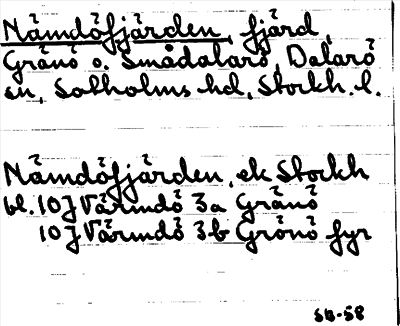 Nämdöfjärden, fjärd,
Gränö o. Smådalarö, Dalarö
sn, Sotholms hd, Stockh. l.
Nämdöfjärden, ek Stockh
bl. 10J Värmdö 3a Gränö
10J Värmdö 3b Grönö fyr
SB-58